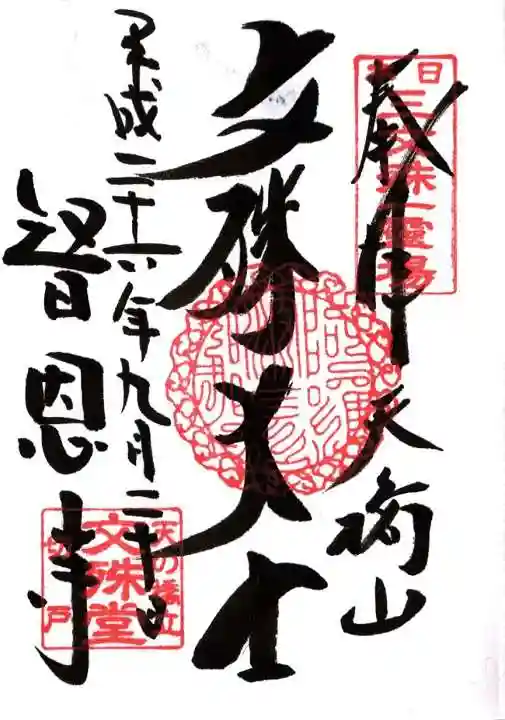 奉拝 天橋山
日本三文殊一霊場
文殊大士
平成二十六年九月二十日
智恩寺
天の橋立
文殊堂
切戸